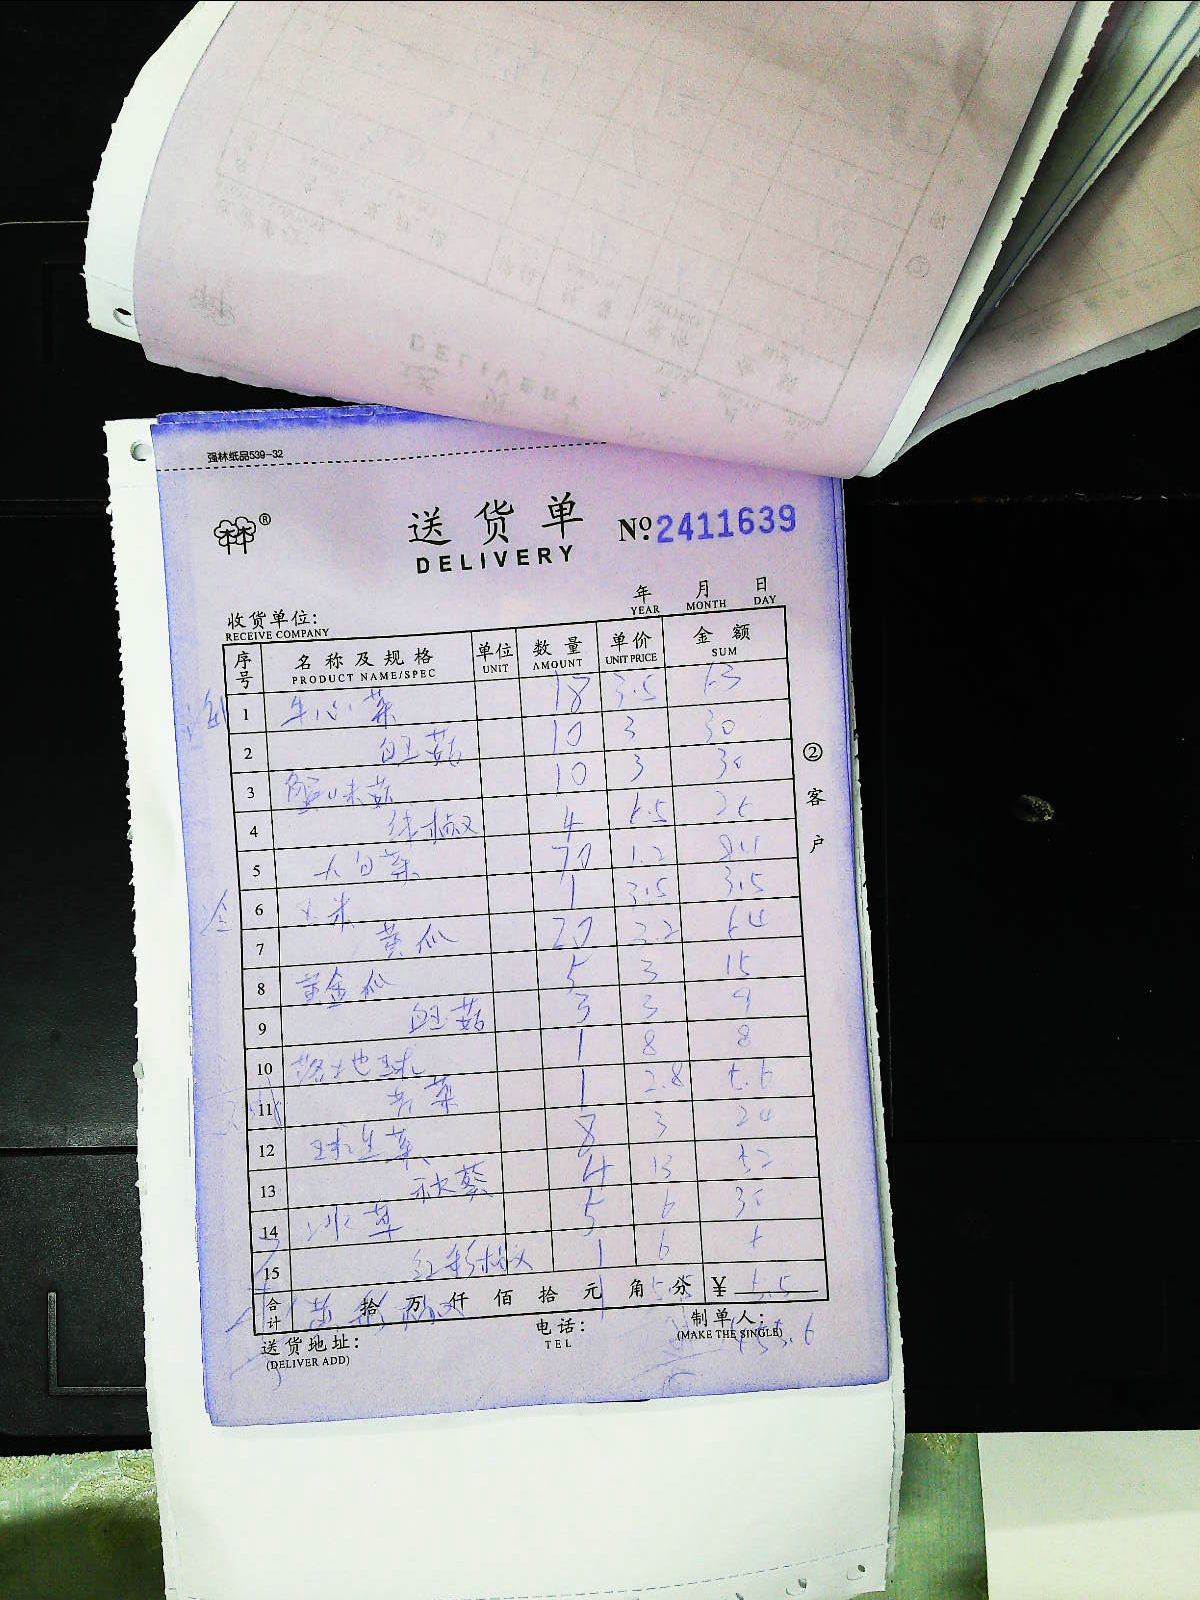 强林纸品539-32
送货单 №2411639
DELIVERY
年 月 日
YEAR MONTH DAY
收货单位:
RECEIVE COMPANY
序号 名称及规格 单位 数量 单价 金额
PRODUCT NAME/SPEC UNIT AMOUNT UNIT PRICE SUM
1 牛心菜 18 3.5 63
2 白玉菇 10 3 30
3 蟹味菇 10 3 30
4 线椒 4 6.5 26
5 大白菜 70 1.2 84
6 玉米 1 3.5 3.5
7 黄瓜 20 3.2 64
8 黄金瓜 5 3 15
9 白玉菇 3 3 9
10 落地球 1 8 8
11 苦菜 1 2.8
12 球生菜 8 3 24
13 秋葵 4 13 52
14 冰草 5 6 30
15 红彩椒 1 6 6
合计 拾 万 仟 佰 拾 元 角 分 ¥
黄彩椒 1
送货地址: 电话: 制单人:
(DELIVER ADD) TEL (MAKE THE SINGLE)
② 客户